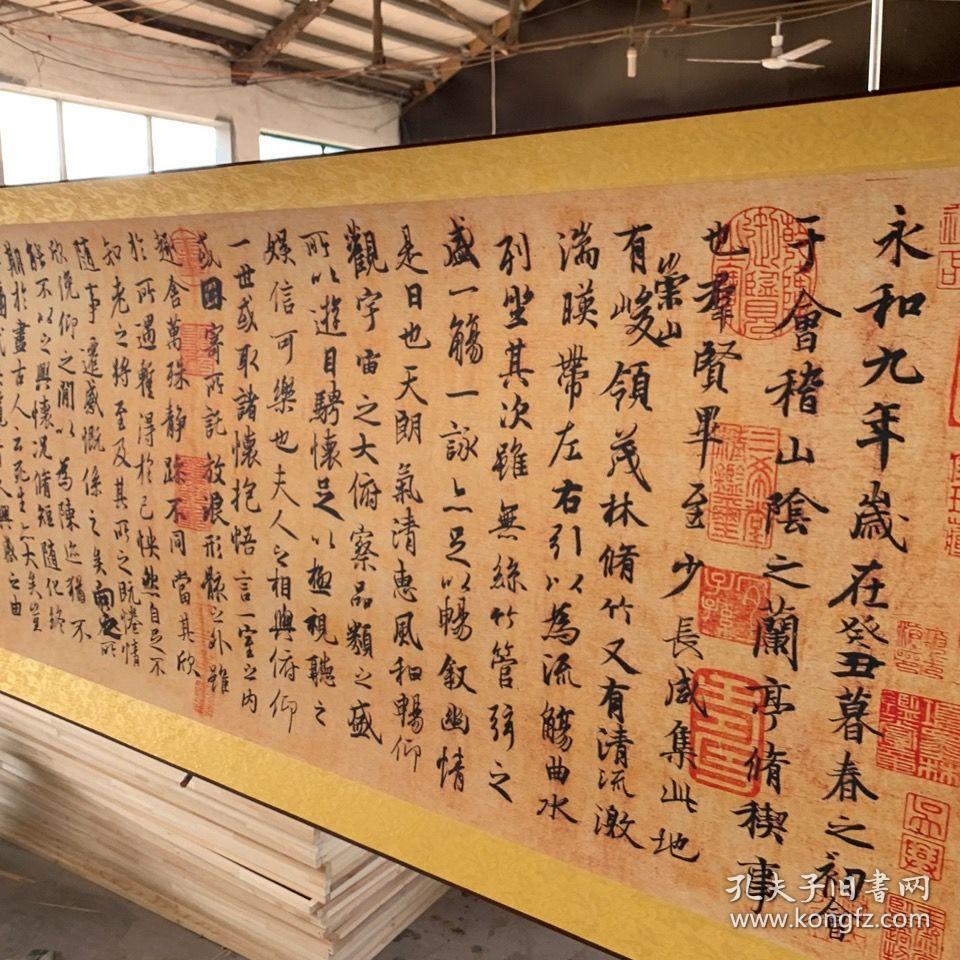 永和九年歲在癸丑暮春之初會
于會稽山陰之蘭亭脩稧事
也羣賢畢至少長咸集此地
有崇山峻領茂林脩竹又有清流激
湍暎帶左右引以為流觴曲水
列坐其次雖無絲竹管弦之
盛一觴一詠亦足以暢敘幽情
是日也天朗氣清惠風和暢仰
觀宇宙之大俯察品類之盛
所以遊目騁懷足以極視聽之
娛信可樂也夫人之相與俯仰
一世或取諸懷抱悟言一室之內
或因寄所託放浪形骸之外雖
趣舍萬殊靜躁不同當其欣
於所遇暫得於己怏然自足不
知老之將至及其所之既惓情
隨事遷感慨係之矣向之所
欣俛仰之閒以為陳迹猶不
能不以之興懷況脩短隨化終
期於盡古人云死生亦大矣豈
人興感之由
孔夫子旧书网
www.kongfz.com